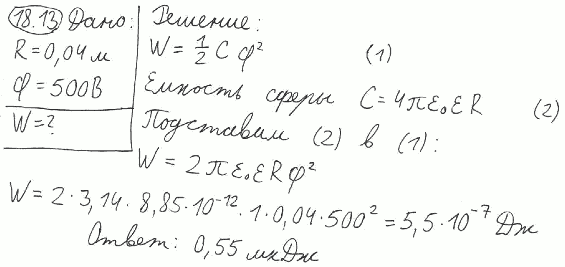 18.13 Дано:
R = 0,04 м
φ = 500В
W = ?
Решение:
W = 1/2 C φ² (1)
Емкость сферы C = 4πε₀εR (2)
Подставим (2) в (1):
W = 2πε₀εRφ²
W = 2·3,14·8,85·10⁻¹²·1·0,04·500² = 5,5·10⁻⁷ Дж
Ответ: 0,55 мкДж